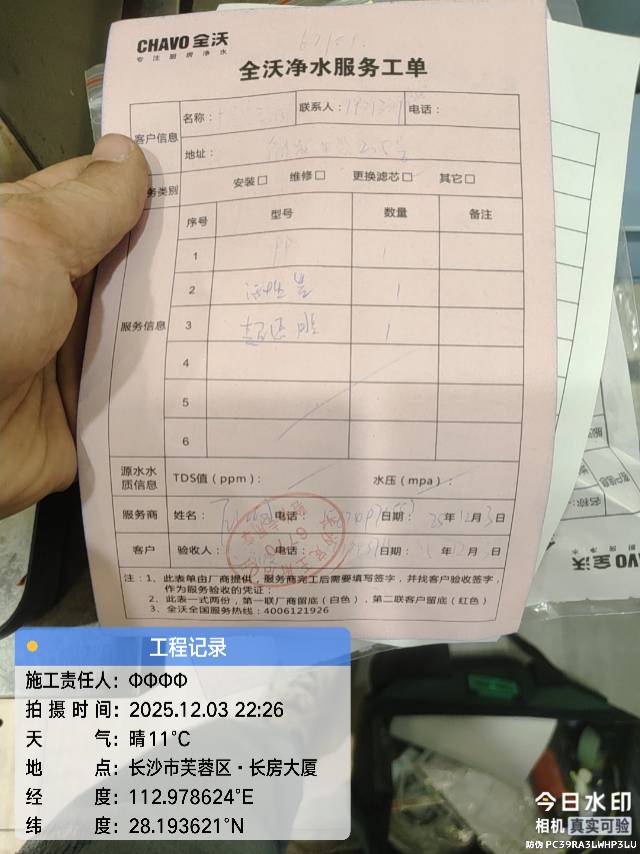 CHAVO 全沃
专注厨房净水
全沃净水服务工单
客户信息
名称：
联系人：
电话：
地址：
务类别
安装□ 维修□ 更换滤芯□ 其它□
服务信息
序号 型号 数量 备注
1 PP 1
2 1
3 1
4
5
6
源水水质信息
TDS值（ppm）： 水压（mpa）：
服务商 姓名： 电话： 日期： 25年12月3日
客户 验收人： 电话： 日期： 年 月 日
注：1、此表单由厂商提供，服务商完工后需要填写签字，并找客户验收签字，
作为服务验收的凭证；
2、此表一式两份，第一联厂商留底（白色），第二联客户留底（红色）
3、全沃全国服务热线：4006121926
工程记录
施工责任人：ΦΦΦΦ
拍摄时间：2025.12.03 22:26
天 气：晴11℃
地 点：长沙市芙蓉区·长房大厦
经 度：112.978624°E
纬 度：28.193621°N
今日水印
相机 真实可验
防伪 PC39RA3LWHP3LU
HAVO 全沃